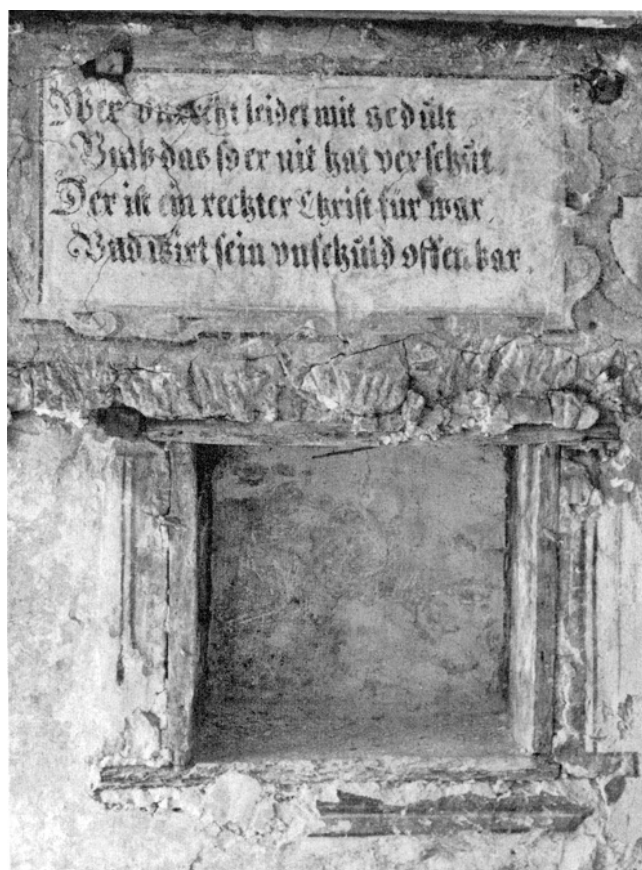 Wer vnrecht leidet mit gedult
Vmb das so er nit hat verschult
Der ist ein rechter Christ für war,
Vnd wirt sein vnschuld offenbar.